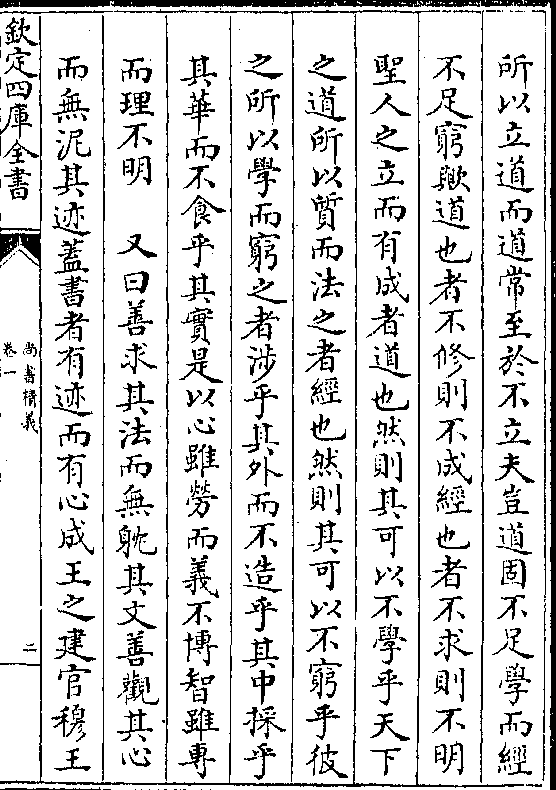 所以立道而道常至於不立夫豈道固不足學而經
不足窮歟道也者不修則不成經也者不求則不明
聖人之立而有成者道也然則其可以不學乎天下
之道所以質而法之者經也然則其可以不窮乎彼
之所以學而窮之者涉乎其外而不造乎其中採乎
其華而不食乎其實是以心雖勞而義不博智雖專
而理不明　又曰善求其法而無躭其文善觀其心
而無泥其迹蓋書者有迹而有心成王之建官穆王
欽定四庫全書
尚書精義
卷一
二